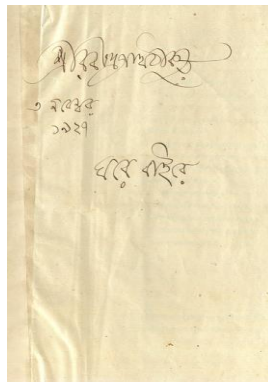 শ্রীরবীন্দ্রনাথ ঠাকুর
৩ নবেম্বর
১৯২৭
ঘরে বাইরে